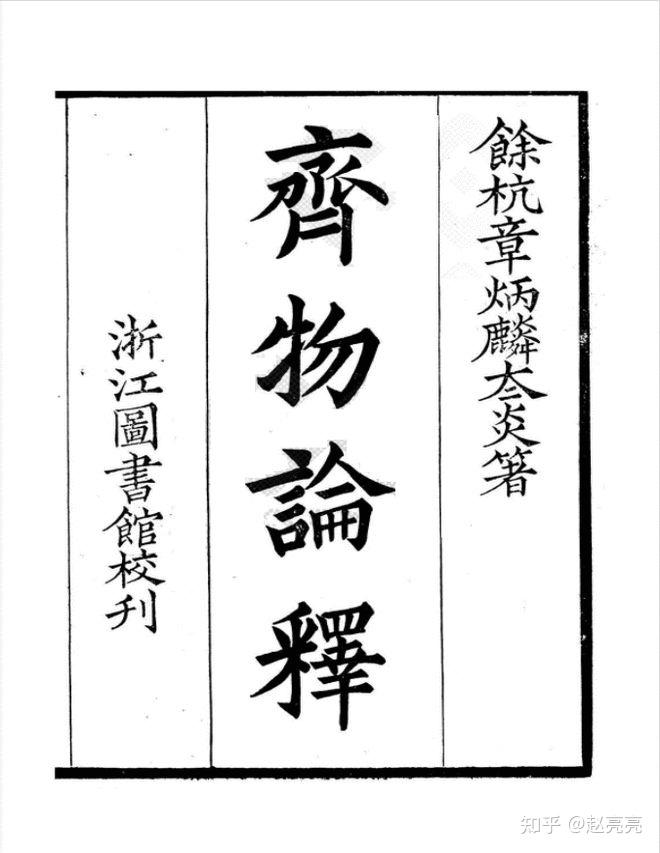 餘杭章炳麟夳炎箸
齊物論釋
浙江圖書館校刊
知乎 @赵亮亮